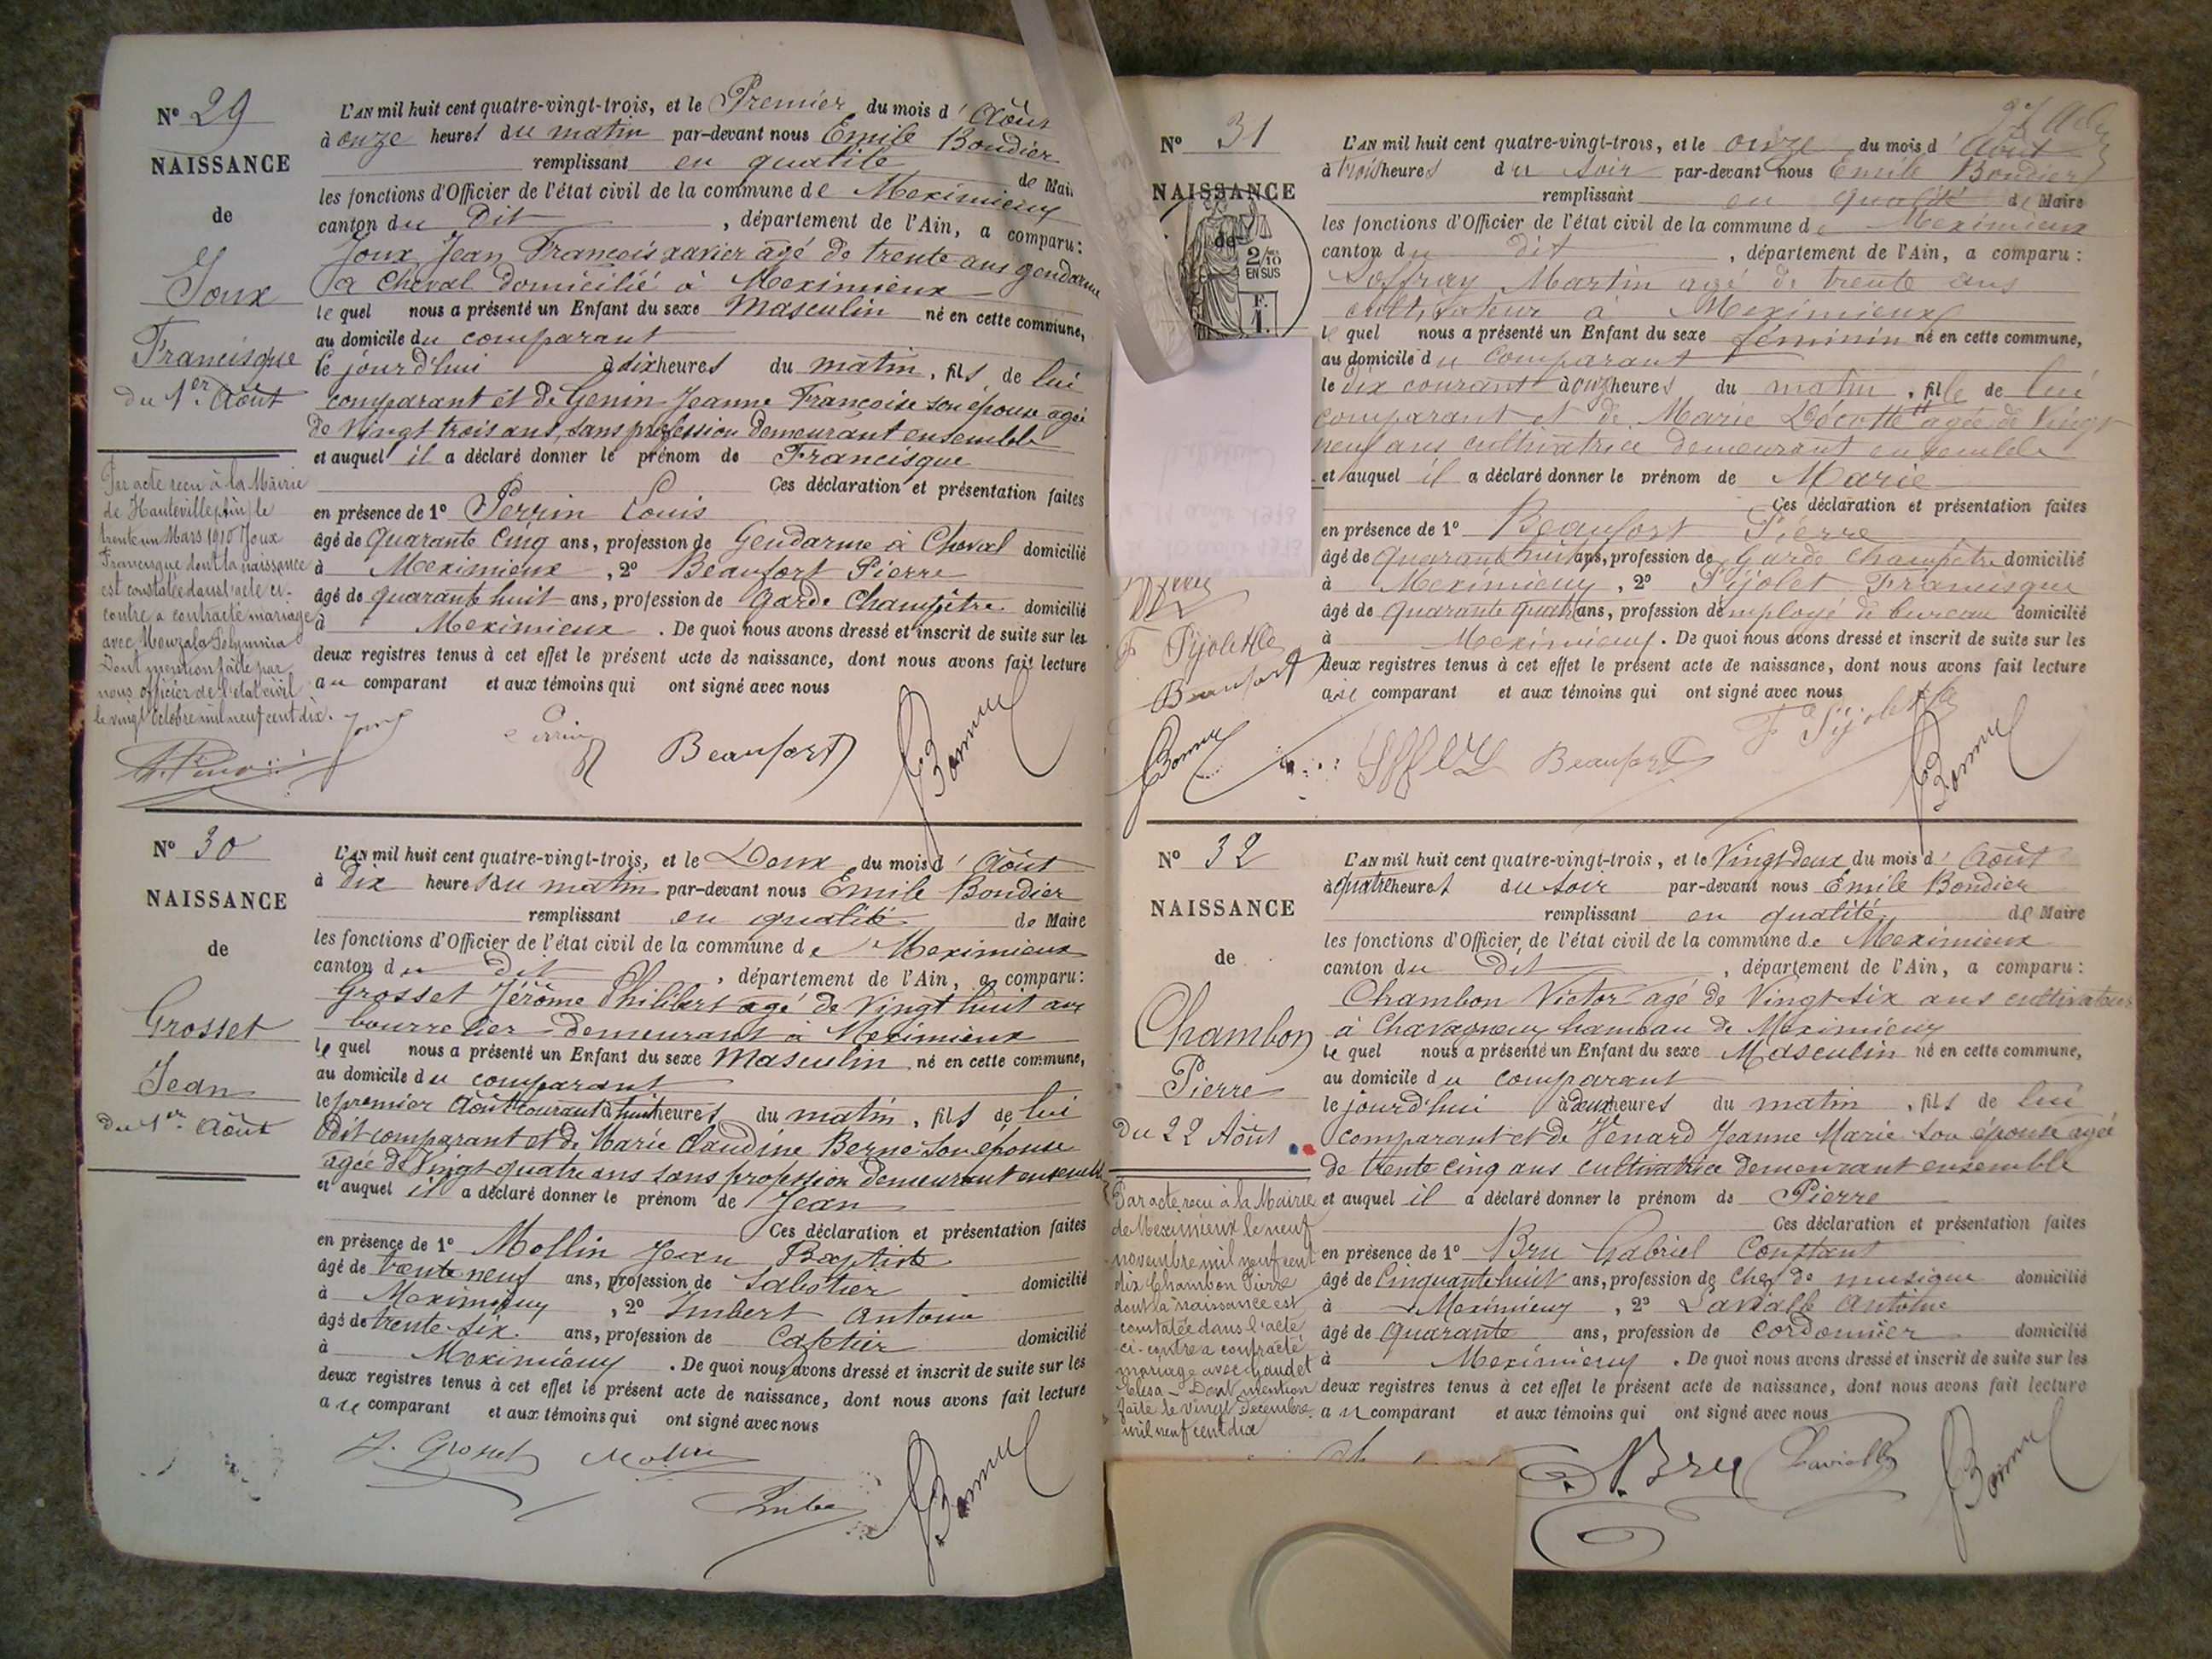 N° 29
NAISSANCE
de
Joux
Francisque
du 1er Août
Par acte reçu à la Mairie
de Hauteville (Ain) le
trente un Mars 1910 Joux
Francisque dont la naissance
est constatée dans l'acte ci-
contre a contracté mariage
avec
Dont mention faite par
nous officier de l'état civil
le vingt Octobre mil neuf cent dix.
L'AN mil huit cent quatre-vingt-trois, et le Premier du mois d'Août
à onze heures du matin par-devant nous Emile Bondier
remplissant en qualité de Mai
les fonctions d'Officier de l'état civil de la commune de Meximieux
canton du Dit, département de l'Ain, a comparu:
Joux Jean François xavier agé de trente ans gendarme
à Cheval domicilié à Meximieux
le quel nous a présenté un Enfant du sexe Masculin né en cette commune,
au domicile du comparant
le jourd'hui à dix heures du matin, fils de lui
comparant et de Genin Jeanne Françoise son épouse agée
de Vingt trois ans, sans profession Demeurant ensemble
et auquel il a déclaré donner le prénom de Francisque
Ces déclaration et présentation faites
en présence de 1° Perrin Louis
âgé de Quarante Cinq ans, profession de Gendarme à Cheval domicilié
à Meximieux, 2° Beaufort Pierre
âgé de quarante huit ans, profession de Garde Champêtre domicilié
à Meximieux. De quoi nous avons dressé et inscrit de suite sur les
deux registres tenus à cet effet le présent acte de naissance, dont nous avons fait lecture
au comparant et aux témoins qui ont signé avec nous
Joux Perrin Beaufort
N° 30
NAISSANCE
de
Grosset
Jean
Du 1er Août
L'AN mil huit cent quatre-vingt-trois, et le Deux du mois d'Août
à Dix heures du matin par-devant nous Emile Bondier
remplissant en qualité de Maire
les fonctions d'Officier de l'état civil de la commune de Meximieux
canton du Dit, département de l'Ain, a comparu:
Grosset Jérôme Philibert agé de Vingt huit ans
bourrelier demeurant à Meximieux
le quel nous a présenté un Enfant du sexe Masculin né en cette commune,
au domicile du comparant
le premier Août courant à huit heures du matin, fils de lui
dit comparant et de Marie Claudine Berne son épouse
agée de Vingt quatre ans sans profession demeurant ensemble
et auquel il a déclaré donner le prénom de Jean
Ces déclaration et présentation faites
en présence de 1° Mollin Jean Baptiste
âgé de trente neuf ans, profession de Sabotier domicilié
à Meximieux, 2° Imbert Antoine
âgé de trente six ans, profession de Cafetier domicilié
à Meximieux. De quoi nous avons dressé et inscrit de suite sur les
deux registres tenus à cet effet le présent acte de naissance, dont nous avons fait lecture
au comparant et aux témoins qui ont signé avec nous
J. Grosset Mollin
Imbe
N° 31
NAISSANCE
de
2/10
EN SUS
F.
1.
F Pijolet
Beaufort
L'AN mil huit cent quatre-vingt-trois, et le onze du mois d'Août
à trois heures du soir par-devant nous Emile Bondier
remplissant en qualité de Maire
les fonctions d'Officier de l'état civil de la commune de Meximieux
canton du dit, département de l'Ain, a comparu:
Soffray Martin agé de trente ans
cultivateur à Meximieux
le quel nous a présenté un Enfant du sexe féminin né en cette commune,
au domicile du comparant
le dix courant à onze heures du matin, fille de lui
comparant et de Marie Décotte agée de Vingt
neuf ans cultivatrice demeurant ensemble
et auquel il a déclaré donner le prénom de Marie
Ces déclaration et présentation faites
en présence de 1° Beaufort Pierre
âgé de quarante huit ans, profession de Garde Champêtre domicilié
à Meximieux, 2° Pijolet Francisque
âgé de quarante quatre ans, profession d'employé de bureau domicilié
à Meximieux. De quoi nous avons dressé et inscrit de suite sur les
deux registres tenus à cet effet le présent acte de naissance, dont nous avons fait lecture
au comparant et aux témoins qui ont signé avec nous
Beaufort F Pijolet
N° 32
NAISSANCE
de
Chambon
Pierre
Du 22 Août
Par acte reçu à la Mairie
de Meximieux le neuf
novembre mil neuf cent
dix Chambon Pierre
dont la naissance est
constatée dans l'acte
ci-contre a contracté
mariage avec Gaudet
Elisa - Dont mention
faite le vingt Décembre
mil neuf cent dix
L'AN mil huit cent quatre-vingt-trois, et le Vingt deux du mois d'Août
à quatre heures du soir par-devant nous Emile Bondier
remplissant en qualité de Maire
les fonctions d'Officier de l'état civil de la commune de Meximieux
canton du Dit, département de l'Ain, a comparu:
Chambon Victor agé de Vingt six ans cultivateur
à Chavagneux hameau de Meximieux
le quel nous a présenté un Enfant du sexe Masculin né en cette commune,
au domicile du comparant
le jourd'hui à deux heures du matin, fils de lui
comparant et de Venard Jeanne Marie son épouse agée
de trente cinq ans cultivatrice demeurant ensemble
et auquel il a déclaré donner le prénom de Pierre
Ces déclaration et présentation faites
en présence de 1° Bru Gabriel Constant
âgé de Cinquante huit ans, profession de Chef de musique domicilié
à Meximieux, 2° Lavialle Antoine
âgé de Quarante ans, profession de cordonnier domicilié
à Meximieux. De quoi nous avons dressé et inscrit de suite sur les
deux registres tenus à cet effet le présent acte de naissance, dont nous avons fait lecture
au comparant et aux témoins qui ont signé avec nous
Bru Lavialle